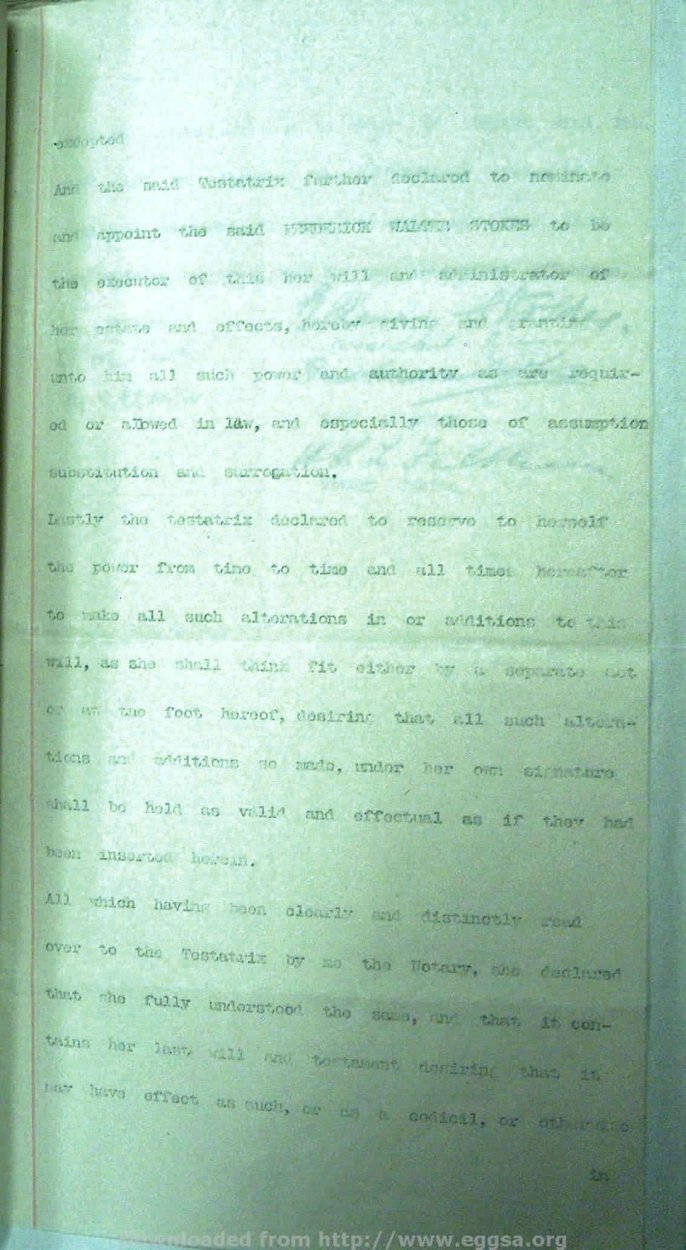 excepted
And the said Testatrix further declared to nominate
and appoint the said FREDERICK WALTER STOKES to be
the executor of this her will and administrator of
her estate and effects, hereby giving and granting
unto him all such power and authority as are requir-
ed or allowed in law, and especially those of assumption
substitution and surrogation.
Lastly the testatrix declared to reserve to herself
the power from time to time and all times hereafter
to make all such alterations in or additions to this
will, as she shall think fit either by a separate act
or at the foot hereof, desiring that all such altera-
tions and additions so made, under her own signature
shall be held as valid and effectual as if they had
been inserted herein.
All which having been clearly and distinctly read
over to the Testatrix by me the Notary, she declared
that she fully understood the same, and that it con-
tains her last will and testament desiring that it
may have effect as such, or as a codicil, or otherwise
in
Downloaded from http://www.eggsa.org